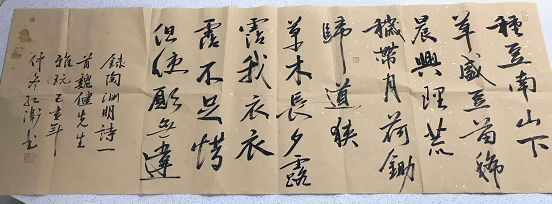 種豆南山下
草盛豆苗稀
晨興理荒
穢帶月荷鋤
歸道狹
草木長夕露
霑我衣衣
霑不足惜
但使願無違
錄陶淵明詩一
首魏健先生
雅玩己亥年
仲冬紅衛書